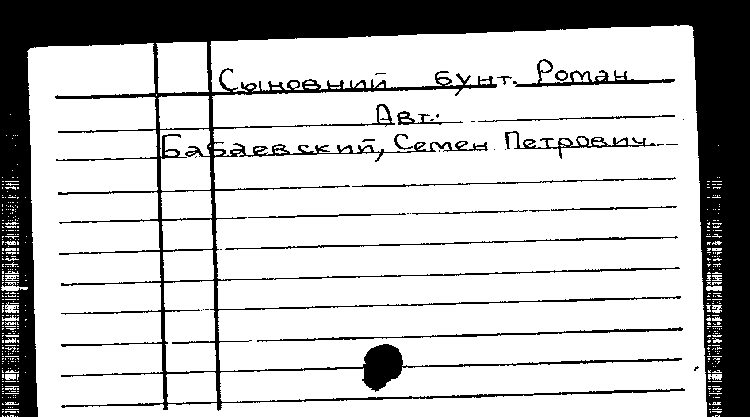 Сыновний бунт. Роман.
Авт.:
Бабаевский, Семен Петрович.